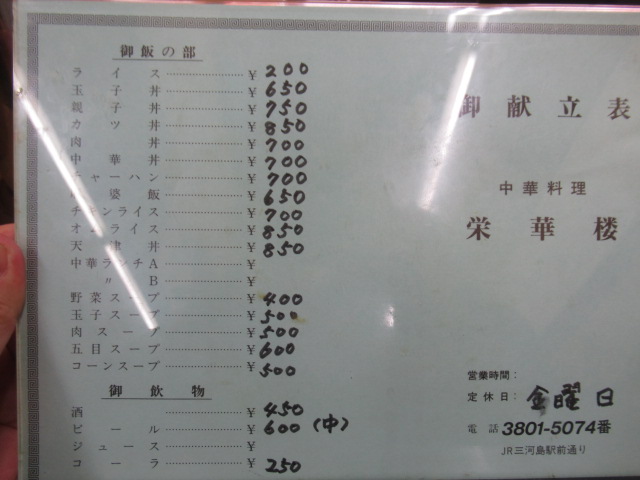 御飯の部
ライス ¥ 200
玉子丼 ¥ 650
親子丼 ¥ 750
カツ丼 ¥ 850
肉丼 ¥ 700
中華丼 ¥ 700
チャーハン ¥ 700
婆飯 ¥ 650
チキンライス ¥ 700
オムライス ¥ 850
天津丼 ¥ 850
中華ランチA ¥
〃 B ¥
野菜スープ ¥ 400
玉子スープ ¥ 500
肉スープ ¥ 500
五目スープ ¥ 600
コーンスープ ¥ 500
御飲物
酒 ¥ 450
ビール ¥ 600 (中)
ジュース ¥
コーラ ¥ 250
御献立表
中華料理
栄華楼
営業時間:
定休日: 金曜日
電話 3801-5074番
JR三河島駅前通り